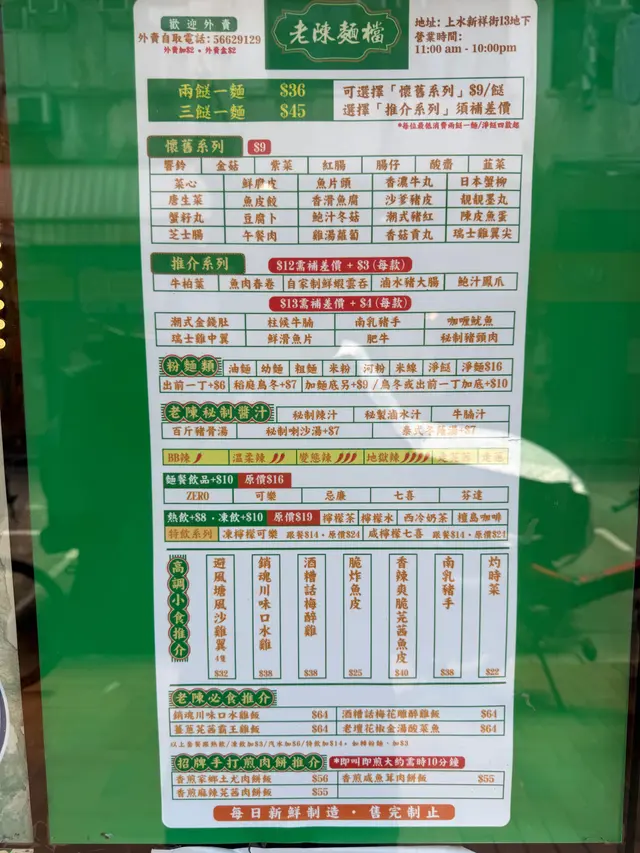 歡迎外賣
外賣自取電話:56629129
外賣加$2,外賣盒$2
老陳麵檔
地址:上水新祥街13地下
營業時間:
11:00 am - 10:00pm
兩餸一麵 $36
三餸一麵 $45
可選擇「懷舊系列」$9/餸
選擇「推介系列」須補差價
*每位最低消費兩餸一麵/淨餸四款起
懷舊系列 $9
響鈴 金菇 紫菜 紅腸 腸仔 酸齋 韮菜
菜心 鮮腐皮 魚片頭 香濃牛丸 日本蟹柳
唐生菜 魚皮餃 香滑魚腐 沙爹豬皮 靚靚墨丸
蟹籽丸 豆腐卜 鮑汁冬菇 潮式豬紅 陳皮魚蛋
芝士腸 午餐肉 雞湯蘿蔔 香菇貢丸 瑞士雞翼尖
推介系列 $12需補差價 + $3 (每款)
牛柏葉 魚肉春卷 自家制鮮蝦雲吞 滷水豬大腸 鮑汁鳳爪
$13需補差價 + $4 (每款)
潮式金錢肚 柱侯牛腩 南乳豬手 咖喱魷魚
瑞士雞中翼 鮮滑魚片 肥牛 秘制豬頭肉
粉麵類 油麵 幼麵 粗麵 米粉 河粉 米線 淨餸 淨麵$16
出前一丁+$6 稻庭烏冬+$7 加麵底另+$9 /烏冬或出前一丁加底+$10
老陳秘制醬汁 秘制辣汁 秘製滷水汁 牛腩汁
百斤豬骨湯 秘制喇沙湯+$7 泰式冬蔭湯+$7
BB辣 溫柔辣 變態辣 地獄辣
麵餐飲品+$10 原價$16
ZERO 可樂 忌廉 七喜 芬達
熱飲+$8·凍飲+$10 原價$19 檸檬茶 檸檬水 西冷奶茶 檀島咖啡
特飲系列 凍檸檬可樂 跟餐$14·原價$24 咸檸檬七喜 跟餐$14·原價$24
高調小食推介
避風塘風沙雞翼 4隻 $32
銷魂川味口水雞 $38
酒糟話梅醉雞 $38
脆炸魚皮 $25
香辣爽脆芫茜魚皮 $40
南乳豬手 $38
灼時菜 $22
老陳必食推介
銷魂川味口水雞飯 $64 酒糟話梅花雕醉雞飯 $64
薑蔥芫茜霸王雞飯 $64 老壇花椒金湯酸菜魚 $64
以上套餐跟熱飲/凍飲加$3/汽水加$6/特飲加$14。如轉粉麵,加$3
招牌手打煎肉餅推介 *即叫即煎大約需時10分鐘
香煎家鄉土尤肉餅飯 $56 香煎咸魚茸肉餅飯 $55
香煎麻辣芫茜肉餅飯 $55
每日新鮮制造·售完制止